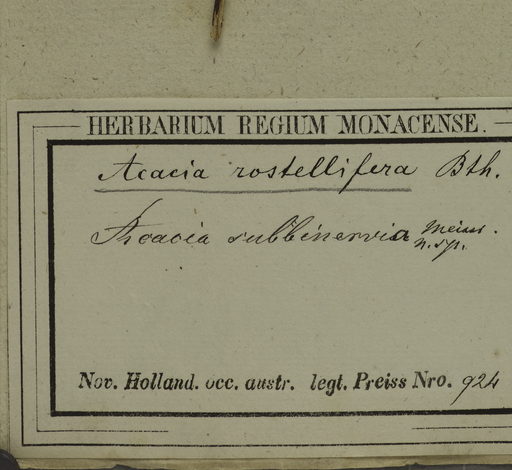 HERBARIUM REGIUM MONACENSE.
Acacia rostellifera Bth.
Acacia subbinervia Meissn.
n. sp.
Nov. Holland. occ. austr. legt. Preiss Nro. 924